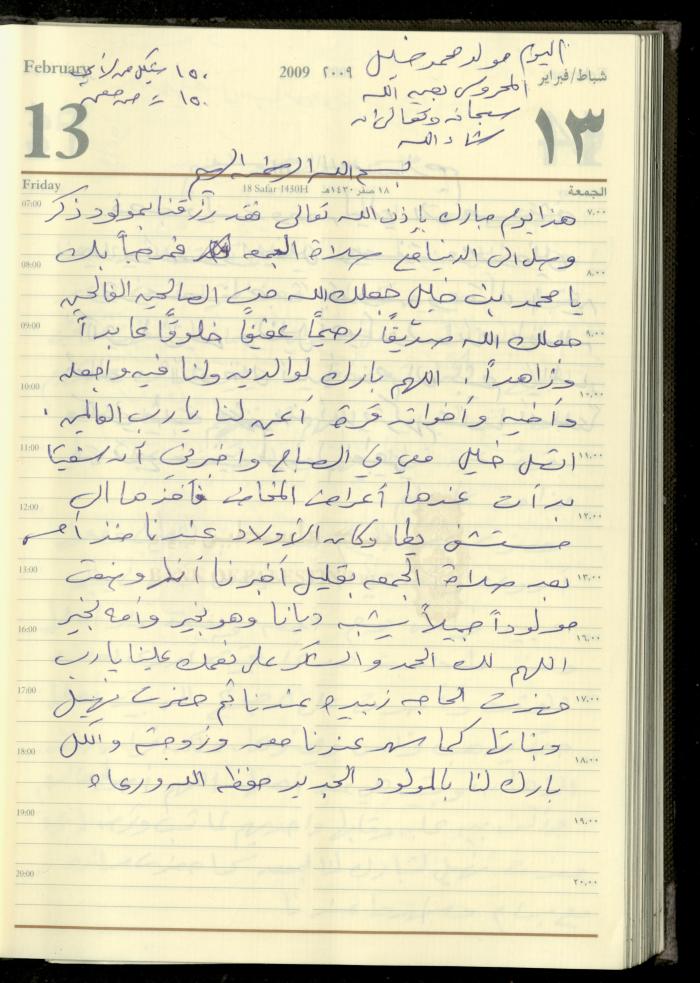 اليوم مولد محمد خليل
المحروس بعين الله
سبحانه وتعالى ان
شاء الله
١٥٠ شيكل من لأبي
١٥٠ = من
February
2009 ٢٠٠٩
شباط/فبراير
13
١٣
بسم الله الرحمن الرحيم
Friday
18 Safar 1430H ١٨ صفر ١٤٣٠هـ
الجمعة
07:00 هذا يوم مبارك بإذن الله تعالى فقد رزقنا بمولود ذكر ٧,٠٠
وصل الى الدنيا مع صلاة الجمعه فمرحباً بك
08:00 ٨,٠٠
يا محمد بن خليل جعلك الله من الصالحين الفالحين
09:00 جعلك الله صدّيقاً رحيماً عفيفاً خلوقاً عابداً ٩,٠٠
وزاهداً . اللهم بارك لوالديه ولنا فيه واجعله
10:00 ١٠,٠٠
وأخيه وأخواته قرة أعين لنا يارب العالمين .
11:00 اتصل خليل معي في الصباح واخبرني أن ١١,٠٠
بدأت عندها أعراض المخاض فأخذها الى
12:00 ١٢,٠٠
مستشفى وكان الأولاد عندنا منذ أمس
13:00 بعد صلاة الجمعه بقليل أخبرنا أنها وضعت ١٣,٠٠
مولوداً جميلاً يشبه ديانا وهو بخير وأمه بخير
16:00 ١٦,٠٠
اللهم لك الحمد والشكر على نعمك علينا يارب
17:00 حضرت الحاجه زبيده عندنا ثم حضرت نهيل ١٧,٠٠
وبناتها كما سهر عندنا معن وزوجته والكل
18:00 ١٨,٠٠
بارك لنا بالمولود الجديد حفظه الله ورعاه
19:00 ١٩,٠٠
20:00 ٢٠,٠٠